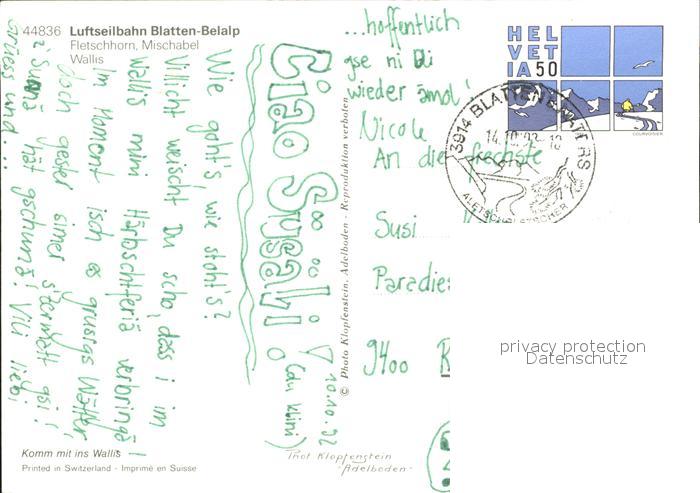 44836 Luftseilbahn Blatten-Belalp
Fletschhorn, Mischabel
Wallis
Ciao Süsäli
10.10.92
(du kliini)
Wie goht's, wie stoht's?
Villicht weischt Du scho, dass i im
Wallis mini Härbschtferiä verbringä!
Im Moment isch äs Wätter,
doch gester simer go!
Sunnä hät gschunä! Vili liebi
Grüess und...
...hoffentlich
gse ni Di
wieder ämol!
Nicole
An die frechste
Susi
Paradie
9400
Komm mit ins Wallis
Printed in Switzerland - Imprimé en Suisse
© Photo Klopfenstein, Adelboden - Reproduktion verboten
Phot Klopfenstein
"Adelboden"
HEL
VET
IA 50
COURVOISIER
3914 BLATTEN B. NATERS
14.10.92-12
ALETSCHGLETSCHER
privacy protection
Datenschutz